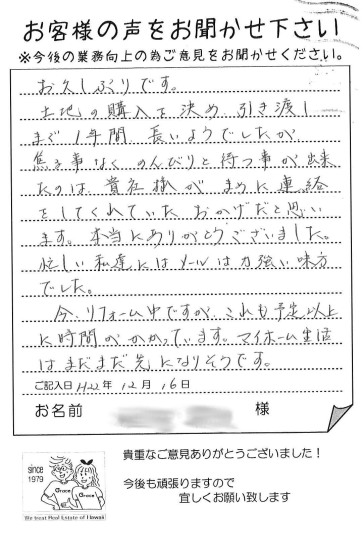 お客様の声をお聞かせ下さい
※今後の業務向上の為ご意見をお聞かせください。
お久しぶりです。
土地の購入を決め、引き渡し
まで1年間、長いようでしたが
焦る事なく、のんびりと待つ事が出来
たのは、貴社様が まめに連絡
をしてくれていた おかげだと思い
ます。本当にありがとうございました。
忙しい私達にはメールは力強い味方
でした。
今、リフォーム中ですが、これも予定以上
に時間がかかっています。マイホーム生活
はまだまだ先になりそうです。
ご記入日 H22年 12月 16日
お名前 様
since
1979
Grace
Grace
The Best Real Estate of Hawaii
貴重なご意見ありがとうございました！
今後も頑張りますので
宜しくお願い致します